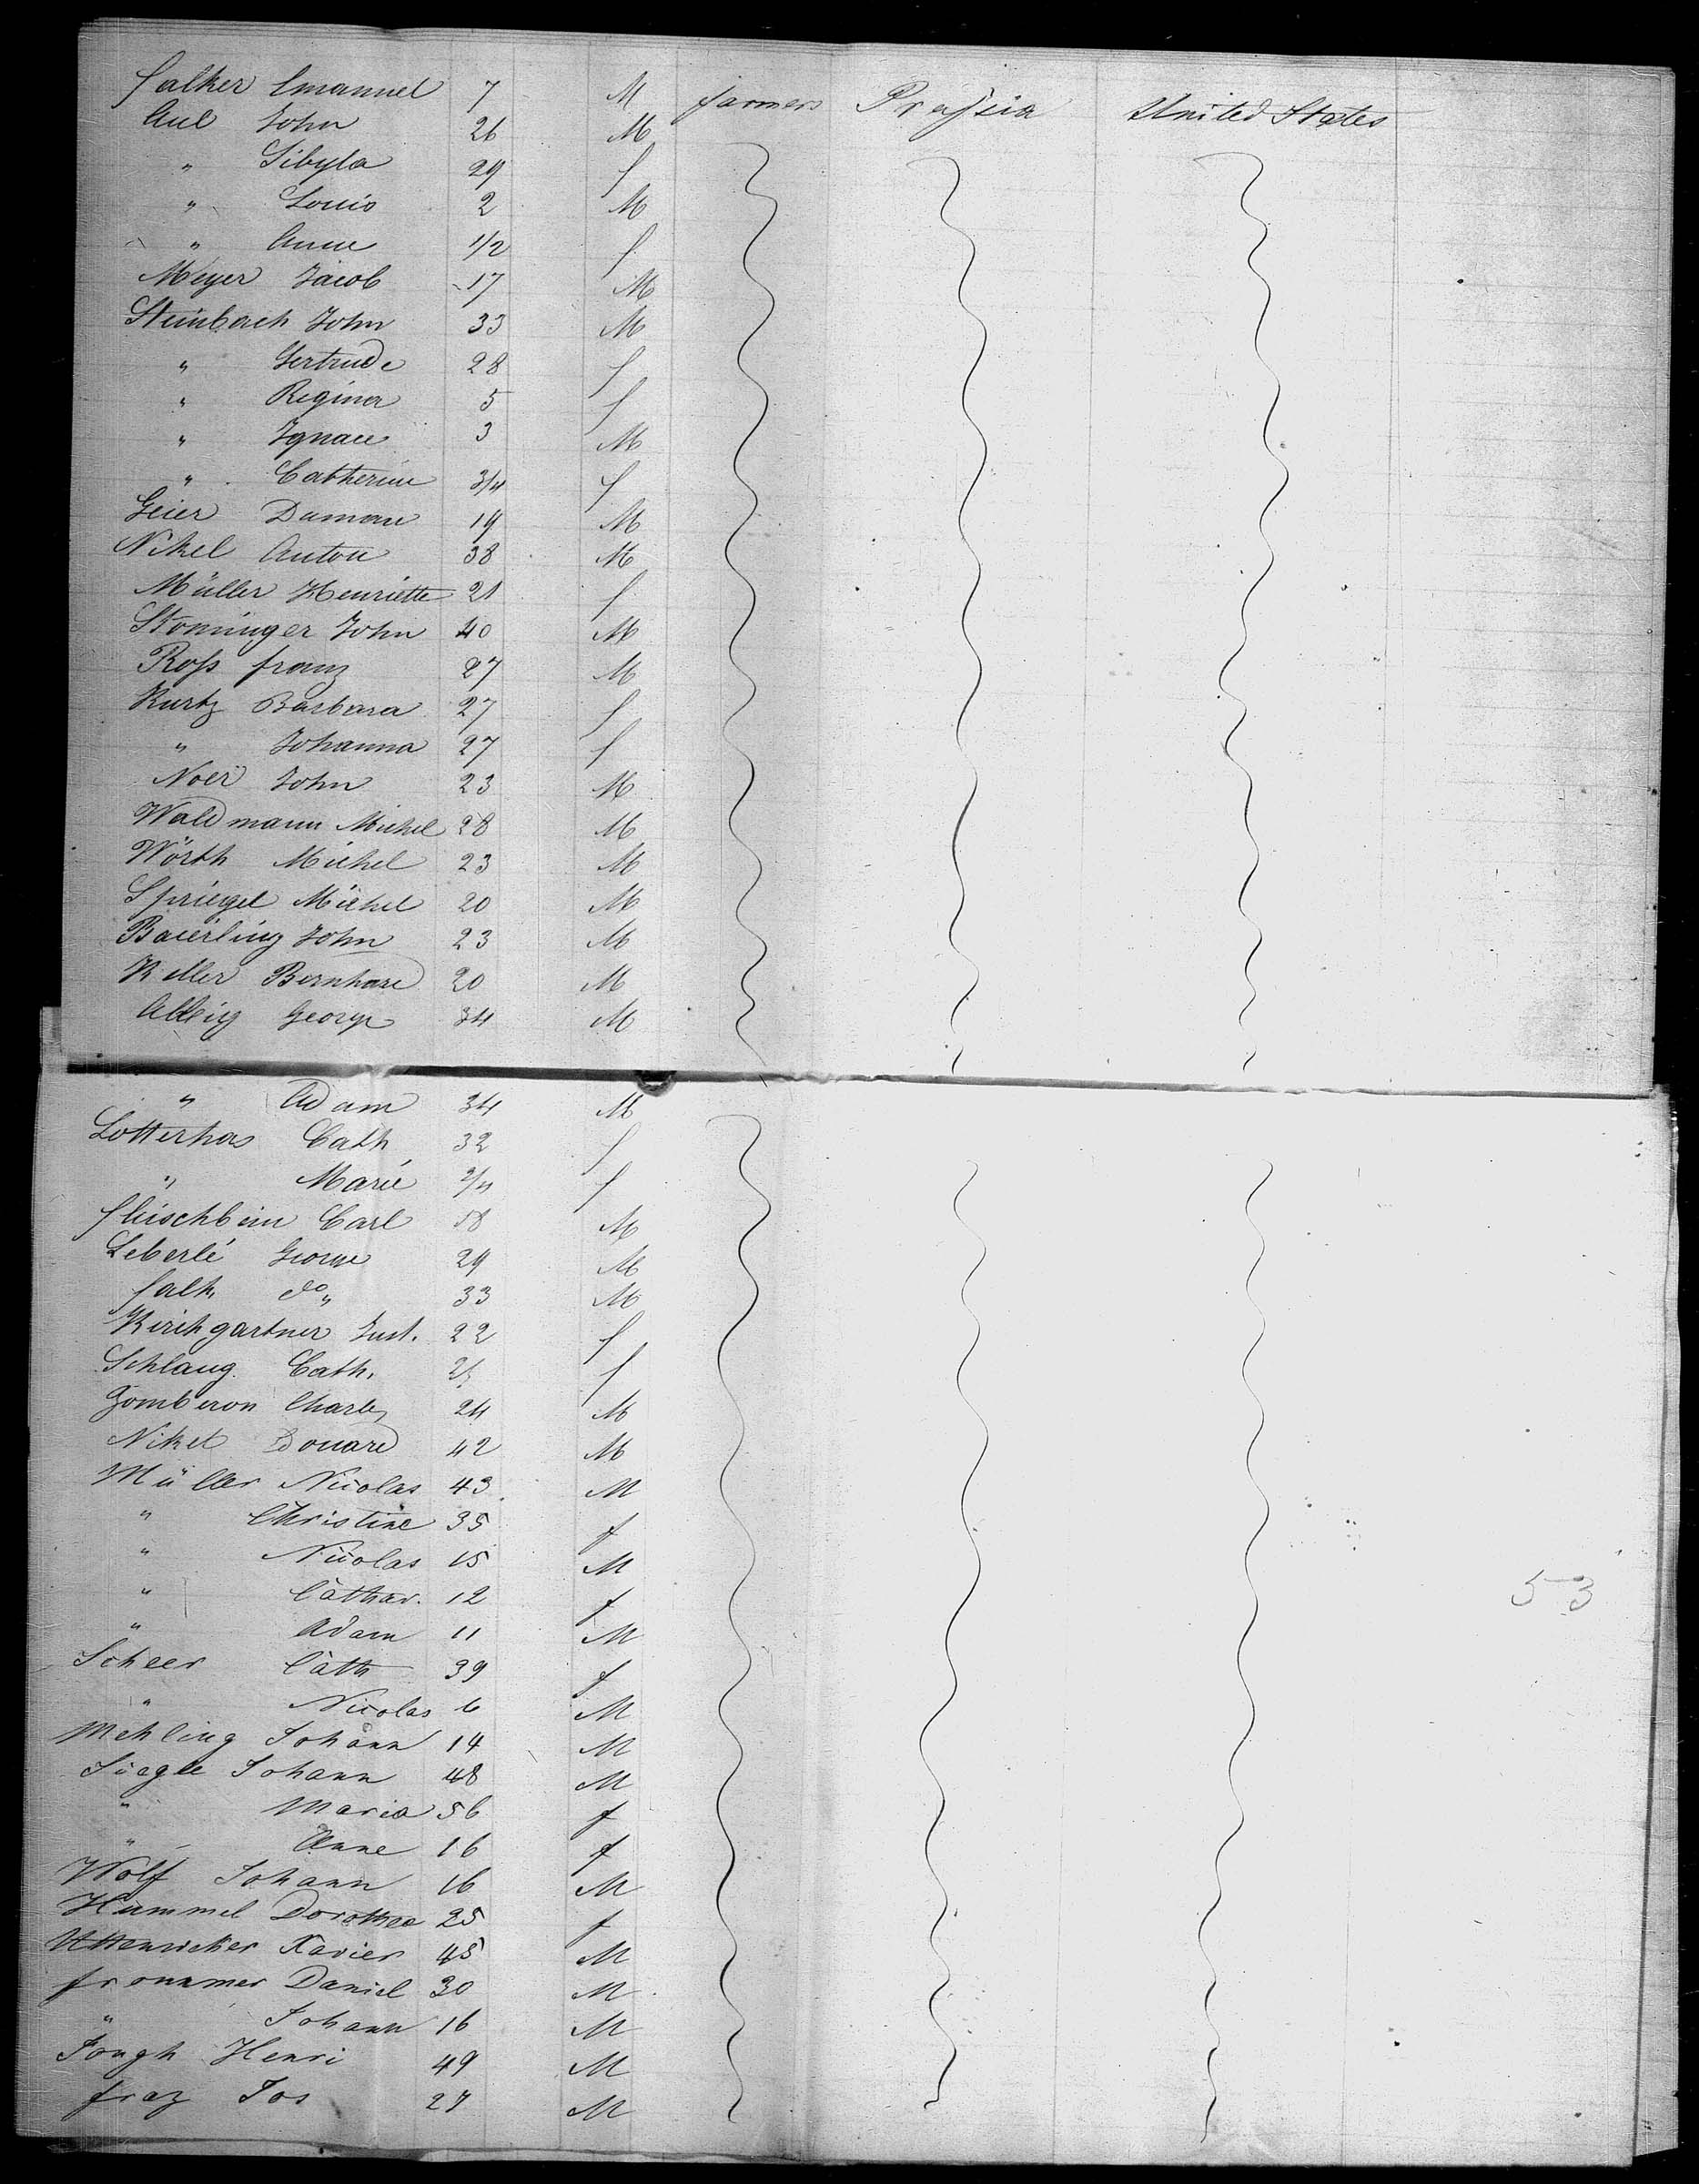 falker Emanuel 7 M farmers Prussia United States
Aul John 26 M
" Sibyla 29 f
" Louis 2 M
" Anne 1/2 f
Meyer Jacob 17 M
Steinbach John 33 M
" Gertrude 28 f
" Regina 5 f
" Ignace 3 M
" Catherine 3/4 f
Geier Damian 19 M
Nikel Anton 38 M
Müller Henriette 21 f
Stoninger John 40 M
Ross franz 27 M
Kurtz Barbara 27 f
" Johanna 27 f
Noër John 23 M
Waldmann Michel 28 M
Wörth Michel 23 M
Spriegel Michel 20 M
Baierling John 23 M
Keller Bernhard 20 M
Albig George 34 M
" Adam 34 M
Lotterhos Cath 32 f
" Marie f
fleischbein Carl 58 M
Leberlé George 29 M
falk do " 33 M
Kirchgartner Just. 22 f
Schlaug Cath. f
Gomberon Charles 24 M
Nikel Edouard 42 M
Müller Nicolas 43 M
" Christine 35 f
" Nicolas 15 M
" Cathar. 12 f
" Adam 11 M
53
Scheer Cath 39 f
" Nicolas 6 M
Mehling Johann 14 M
Siegle Johann 48 M
" Maria 56 f
" Anne 16 f
Wolf Johann 16 M
Hummel Dorothea 25 f
Xavier 45 M
frommer Daniel 30 M
" Johann 16 M
Jongh Henri 49 M
fraz Jos 27 M